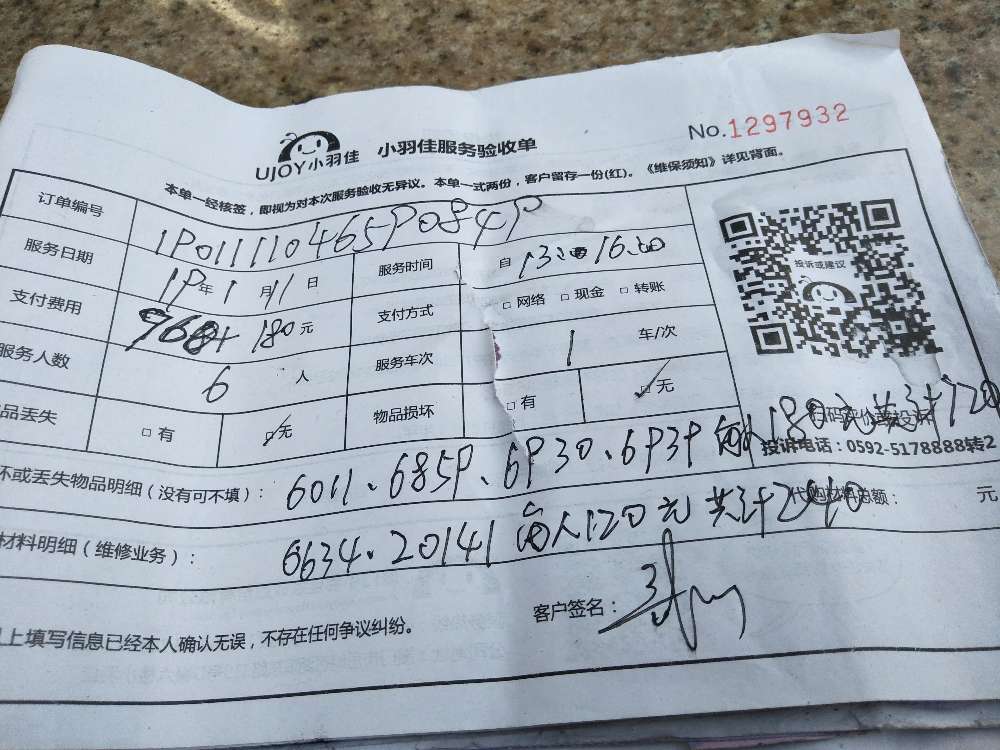 UJOY小羽佳 小羽佳服务验收单 No.1297932
本单一经核签，即视为对本次服务验收无异议。本单一式两份，客户留存一份(红)。《维保须知》详见背面。
订单编号 1901111046590849
服务日期 19年1月11日 服务时间 自 13:00 16:00
支付费用 968+180元 支付方式 □网络 □现金 □转账
服务人数 6人 服务车次 1 车/次
品丢失 □有 ☑无 物品损坏 □有 ☑无
投诉或建议
扫码评价或投诉
投诉电话：0592-5178888转2
坏或丢失物品明细（没有可不填）： 6011、6859、6930、6939 每人180元共计720
代购材料总额： 元
材料明细（维修业务）： 6634、20141 两人120元共计240
上填写信息已经本人确认无误，不存在任何争议纠纷。
客户签名：